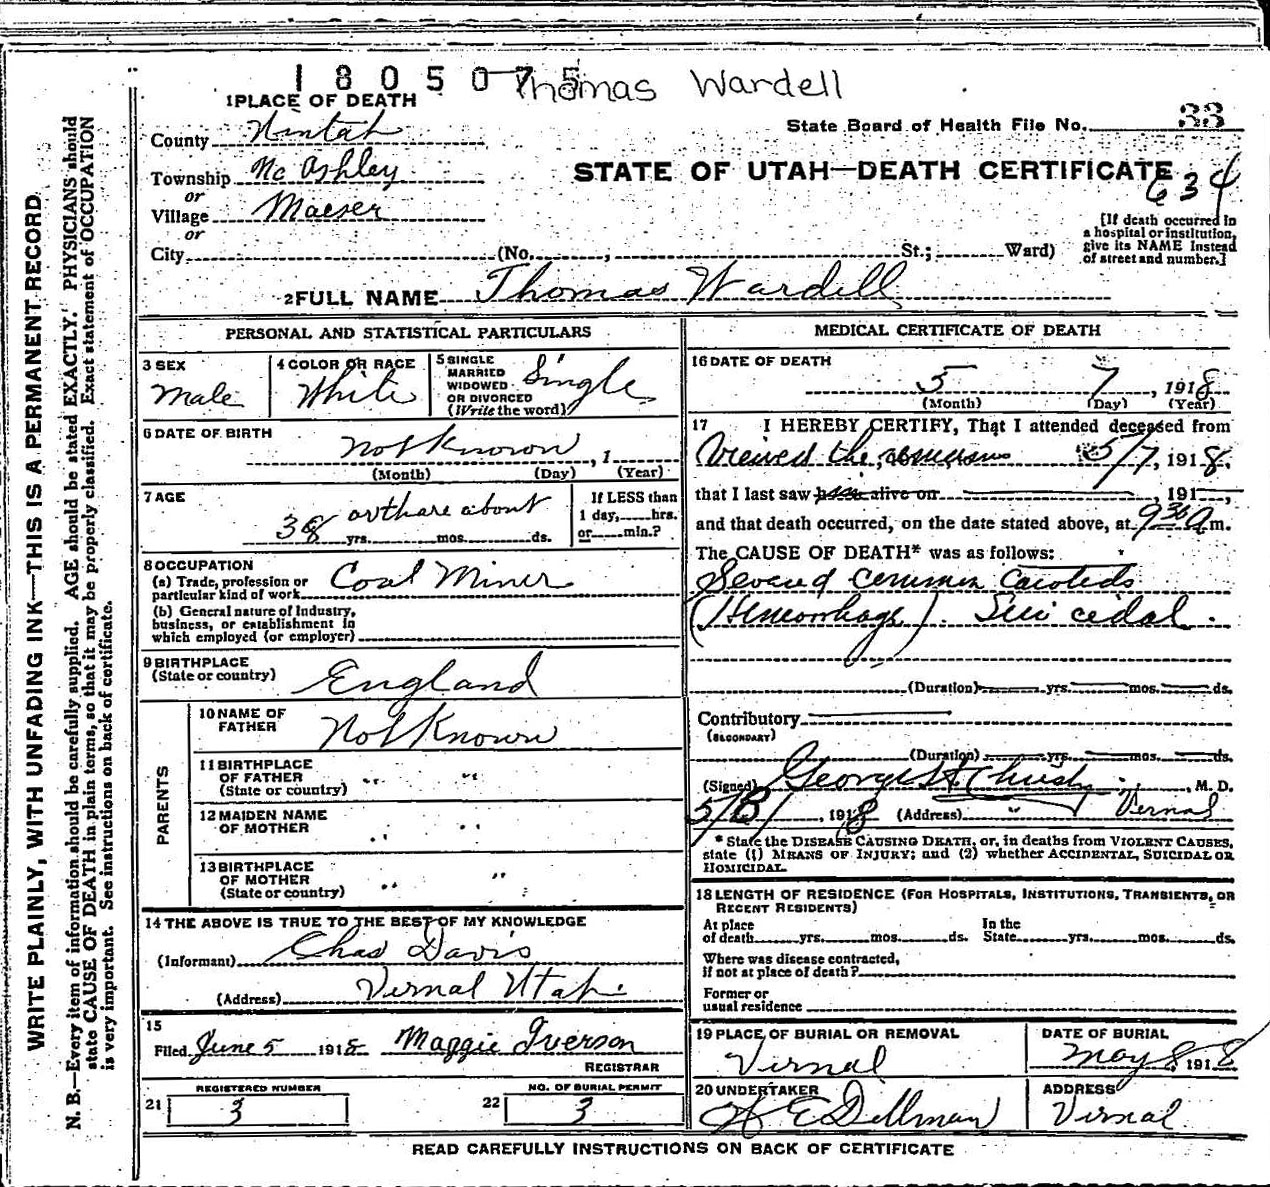 1805075 Thomas Wardell
1 PLACE OF DEATH
State Board of Health File No. 33
634
County Uintah
Township No Ashley
or
Village Maeser
or
City (No. , St.; Ward)
STATE OF UTAH—DEATH CERTIFICATE
[If death occurred in
a hospital or institution,
give its NAME instead
of street and number.]
2 FULL NAME Thomas Wardell
PERSONAL AND STATISTICAL PARTICULARS
3 SEX
Male
4 COLOR OR RACE
White
5 SINGLE
MARRIED
WIDOWED
OR DIVORCED
(Write the word)
Single
6 DATE OF BIRTH
Not Known , 1
(Month) (Day) (Year)
7 AGE
38 or thare about
yrs. mos. ds.
If LESS than
1 day, hrs.
or min.?
8 OCCUPATION
(a) Trade, profession or
particular kind of work Coal Miner
(b) General nature of Industry,
business, or establishment in
which employed (or employer)
9 BIRTHPLACE
(State or country) England
PARENTS
10 NAME OF
FATHER Not Known
11 BIRTHPLACE
OF FATHER
(State or country) " "
12 MAIDEN NAME
OF MOTHER " "
13 BIRTHPLACE
OF MOTHER
(State or country) " "
14 THE ABOVE IS TRUE TO THE BEST OF MY KNOWLEDGE
(Informant) Chas Davis
(Address) Vernal Utah
15
Filed June 5 1918 Maggie Iverson
REGISTRAR
REGISTERED NUMBER
21 3
NO. OF BURIAL PERMIT
22 3
MEDICAL CERTIFICATE OF DEATH
16 DATE OF DEATH
5 7 , 1918
(Month) (Day) (Year)
17 I HEREBY CERTIFY, That I attended deceased from
Viewed the remains 5/7, 1918,
that I last saw h alive on , 191 ,
and that death occurred, on the date stated above, at 9 30 a m.
The CAUSE OF DEATH* was as follows:
Severed common carotids
(Hemorrhage). Suicidal.
(Duration) yrs. mos. ds.
Contributory
(SECONDARY)
(Duration) yrs. mos. ds.
(Signed) George H Christy , M. D.
5/8/ , 1918 (Address) " Vernal
* State the DISEASE CAUSING DEATH, or, in deaths from VIOLENT CAUSES,
state (1) MEANS OF INJURY; and (2) whether ACCIDENTAL, SUICIDAL OR
HOMICIDAL.
18 LENGTH OF RESIDENCE (FOR HOSPITALS, INSTITUTIONS, TRANSIENTS, OR
RECENT RESIDENTS)
At place In the
of death yrs. mos. ds. State yrs. mos. ds.
Where was disease contracted,
if not at place of death?
Former or
usual residence
19 PLACE OF BURIAL OR REMOVAL
Vernal
DATE OF BURIAL
May 8 1918
20 UNDERTAKER
E Dillman
ADDRESS
Vernal
READ CAREFULLY INSTRUCTIONS ON BACK OF CERTIFICATE
WRITE PLAINLY, WITH UNFADING INK—THIS IS A PERMANENT RECORD
N. B.—Every item of information should be carefully supplied. AGE should be stated EXACTLY. PHYSICIANS should
state CAUSE OF DEATH in plain terms, so that it may be properly classified. Exact statement of OCCUPATION
is very important. See instructions on back of certificate.